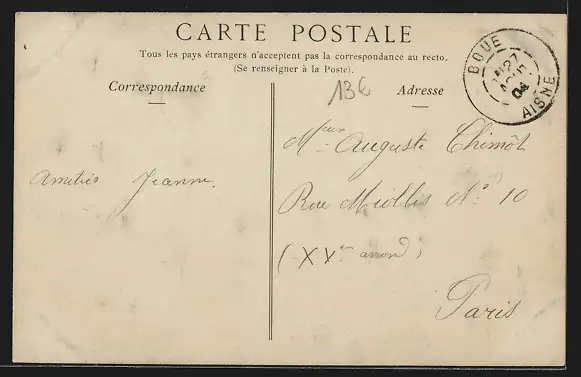 CARTE POSTALE
Tous les pays étrangers n'acceptent pas la correspondance au recto.
(Se renseigner à la Poste).
Correspondance
Adresse
136
BOUE
27
AOUT
04
AISNE
Amitiés Jeanne.
Auguste Thimôt
Rue Miollis No 10
(XVe arrond)
Paris